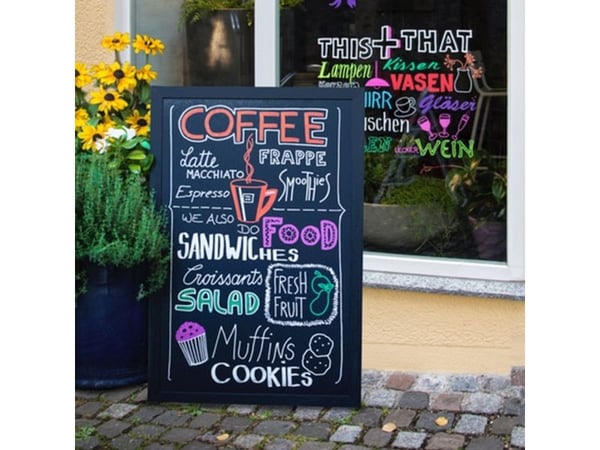 THIS+THAT
Lampen Kissen
VASEN
Gläser
LECKER WEIN
COFFEE
Latte MACCHIATO
FRAPPE
Espresso
SMOOTHIES
WE ALSO DO FOOD
SANDWICHES
Croissants
SALAD
FRESH FRUIT
Muffins
COOKIES